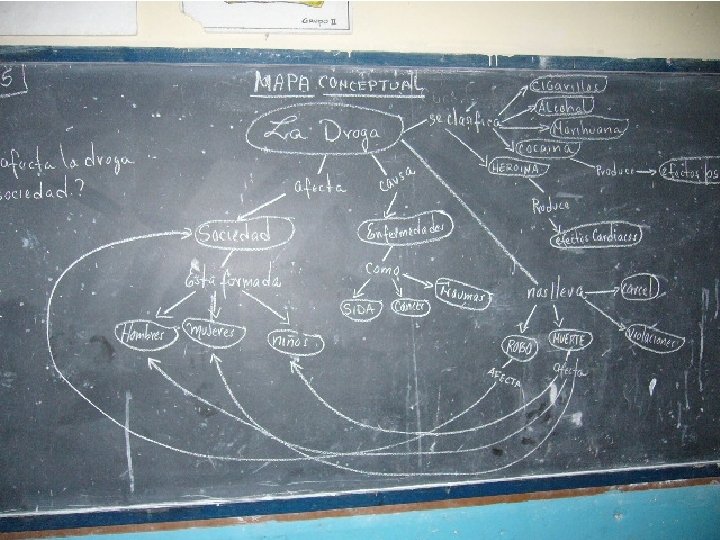 Grupo II
5
MAPA CONCEPTUAL
La Droga
se clasifica
Cigarillos
Alcohol
Marihuana
Cocaina
HEROINA
Produce
efectos
Produce
efectos Cardiacos
afecta la droga
sociedad?
afecta
causa
Sociedad
Enfermedades
Esta formada
Como
SIDA
Cancer
Traumas
nos lleva
Carcel
Violaciones
Hombres
mujeres
niños
ROBO
MUERTE
AFECTA
afecta